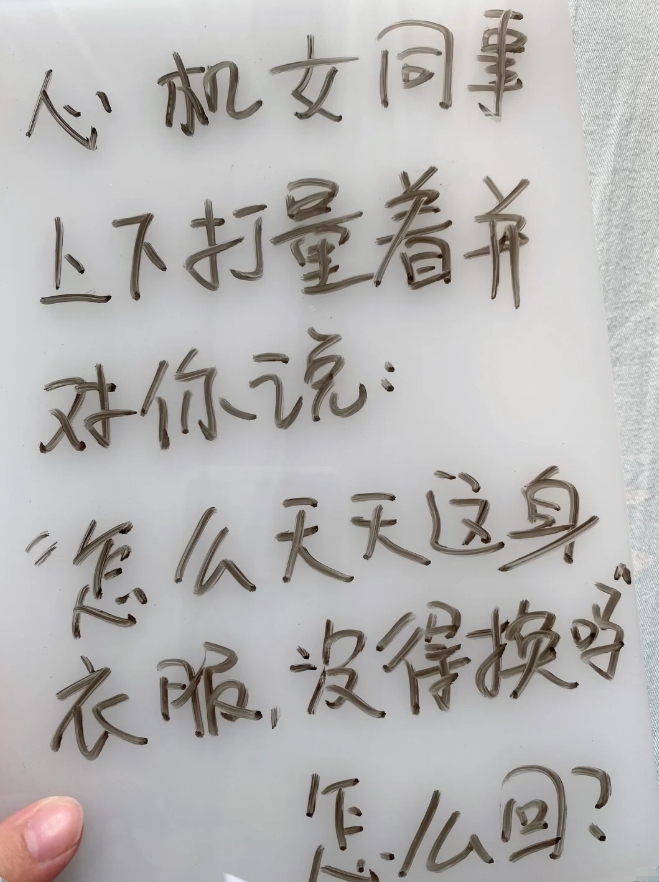 心机女同事
上下打量着并
对你说:
“怎么天天这身
衣服,没得换吗”
怎么回?